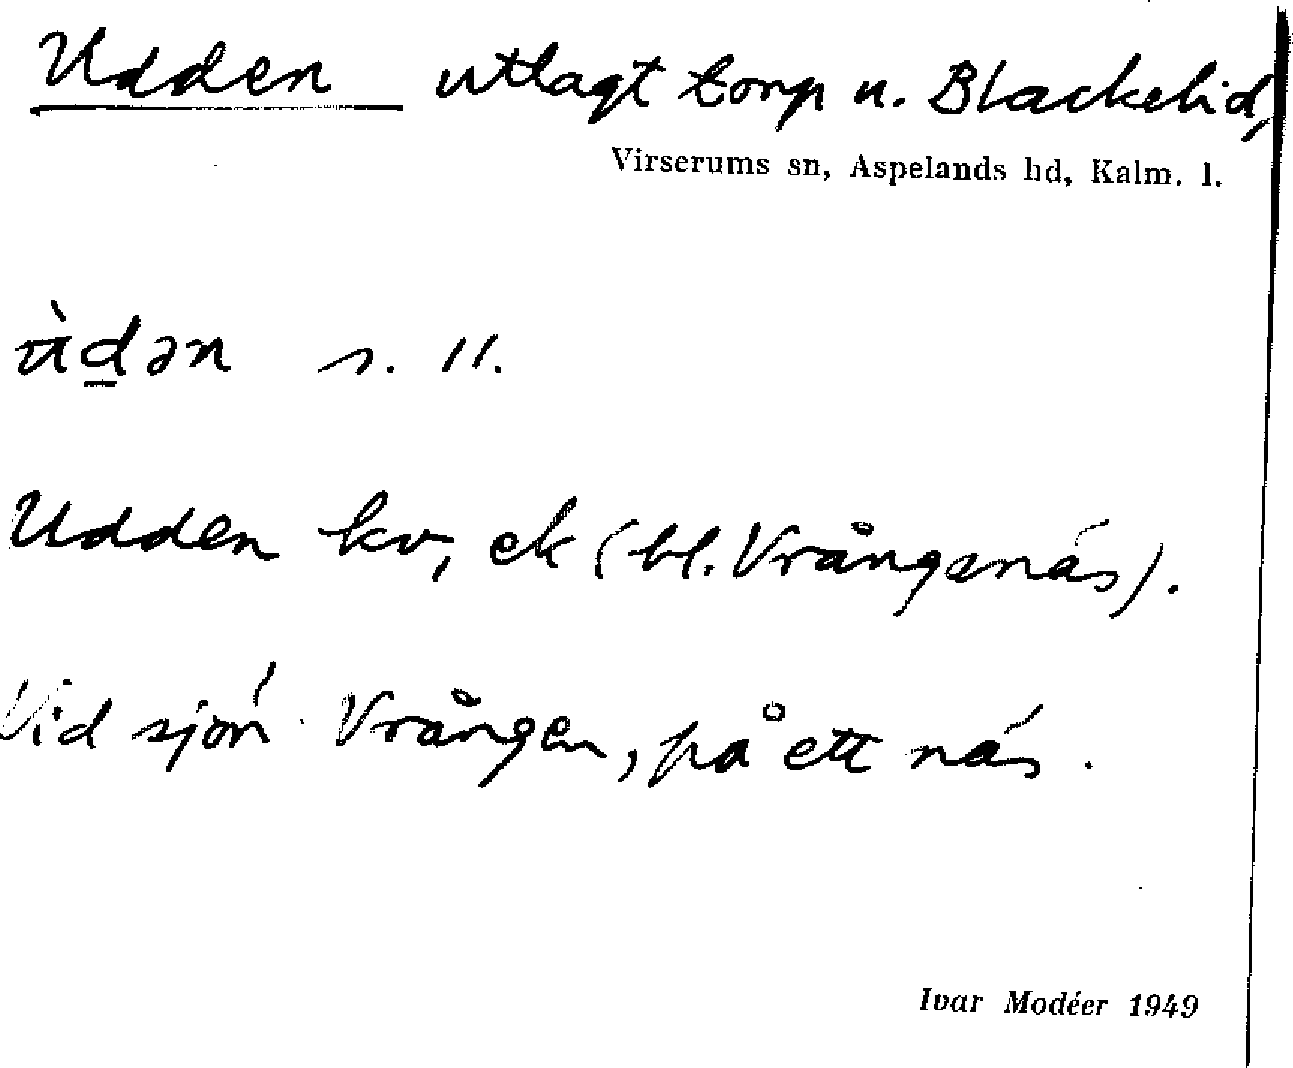 Udden utlagt torp u. Blackelid,
Virserums sn, Aspelands hd, Kalm. l.
ùd̲ən s. 11.
Udden kv, ek (bl. Vrångenäs).
Vid sjön Vrången, på ett näs.
Ivar Modéer 1949